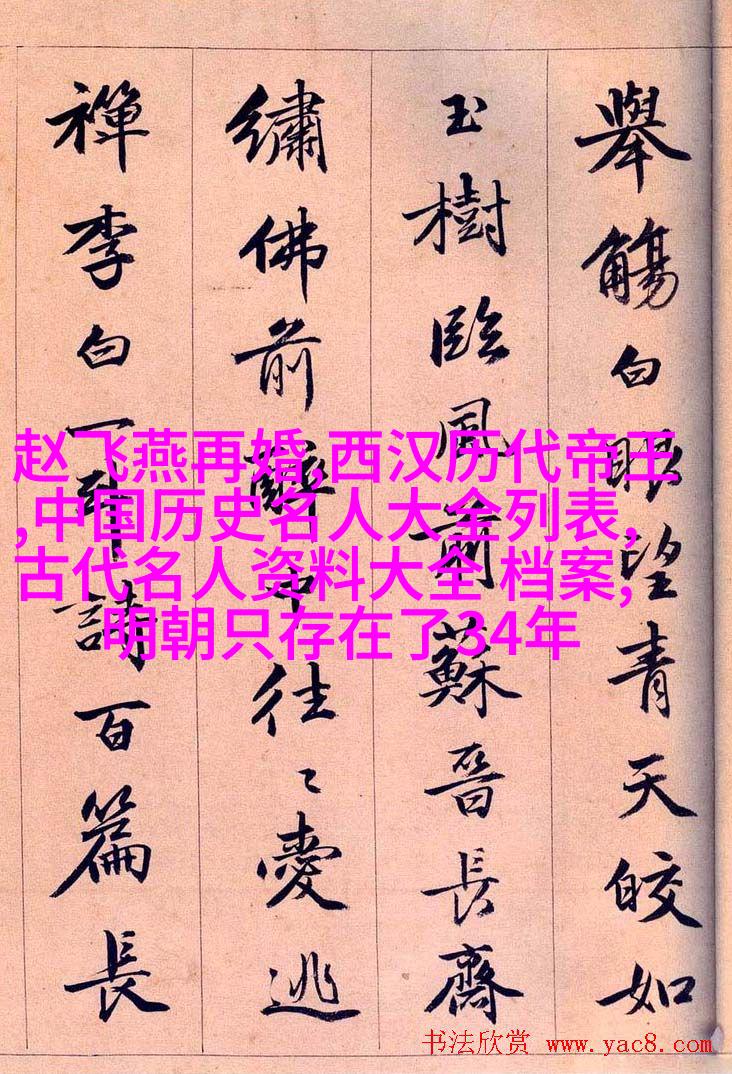 舉觴白眼望青天皎如
玉樹臨風前蘇晉長齋
繡佛前醉中往〻愛逃
禪李白一詩百篇長
赵飞燕再婚,西汉历代帝王
,中国历史名人大全列表,
古代名人资料大全 档案,
明朝只存在了34年
书法欣赏 www.yac8.com